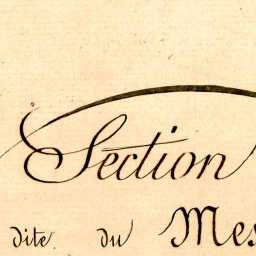 Section
dite du Mes